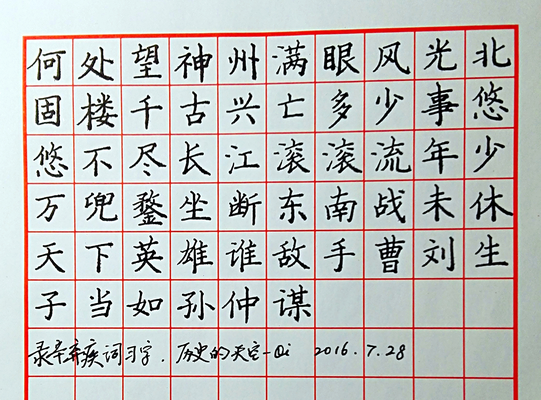 何处望神州满眼风光北
固楼千古兴亡多少事悠
悠不尽长江滚滚流年少
万兜鍪坐断东南战未休
天下英雄谁敌手曹刘生
子当如孙仲谋
录辛弃疾词习字. 历史的天空-Qi 2016.7.28